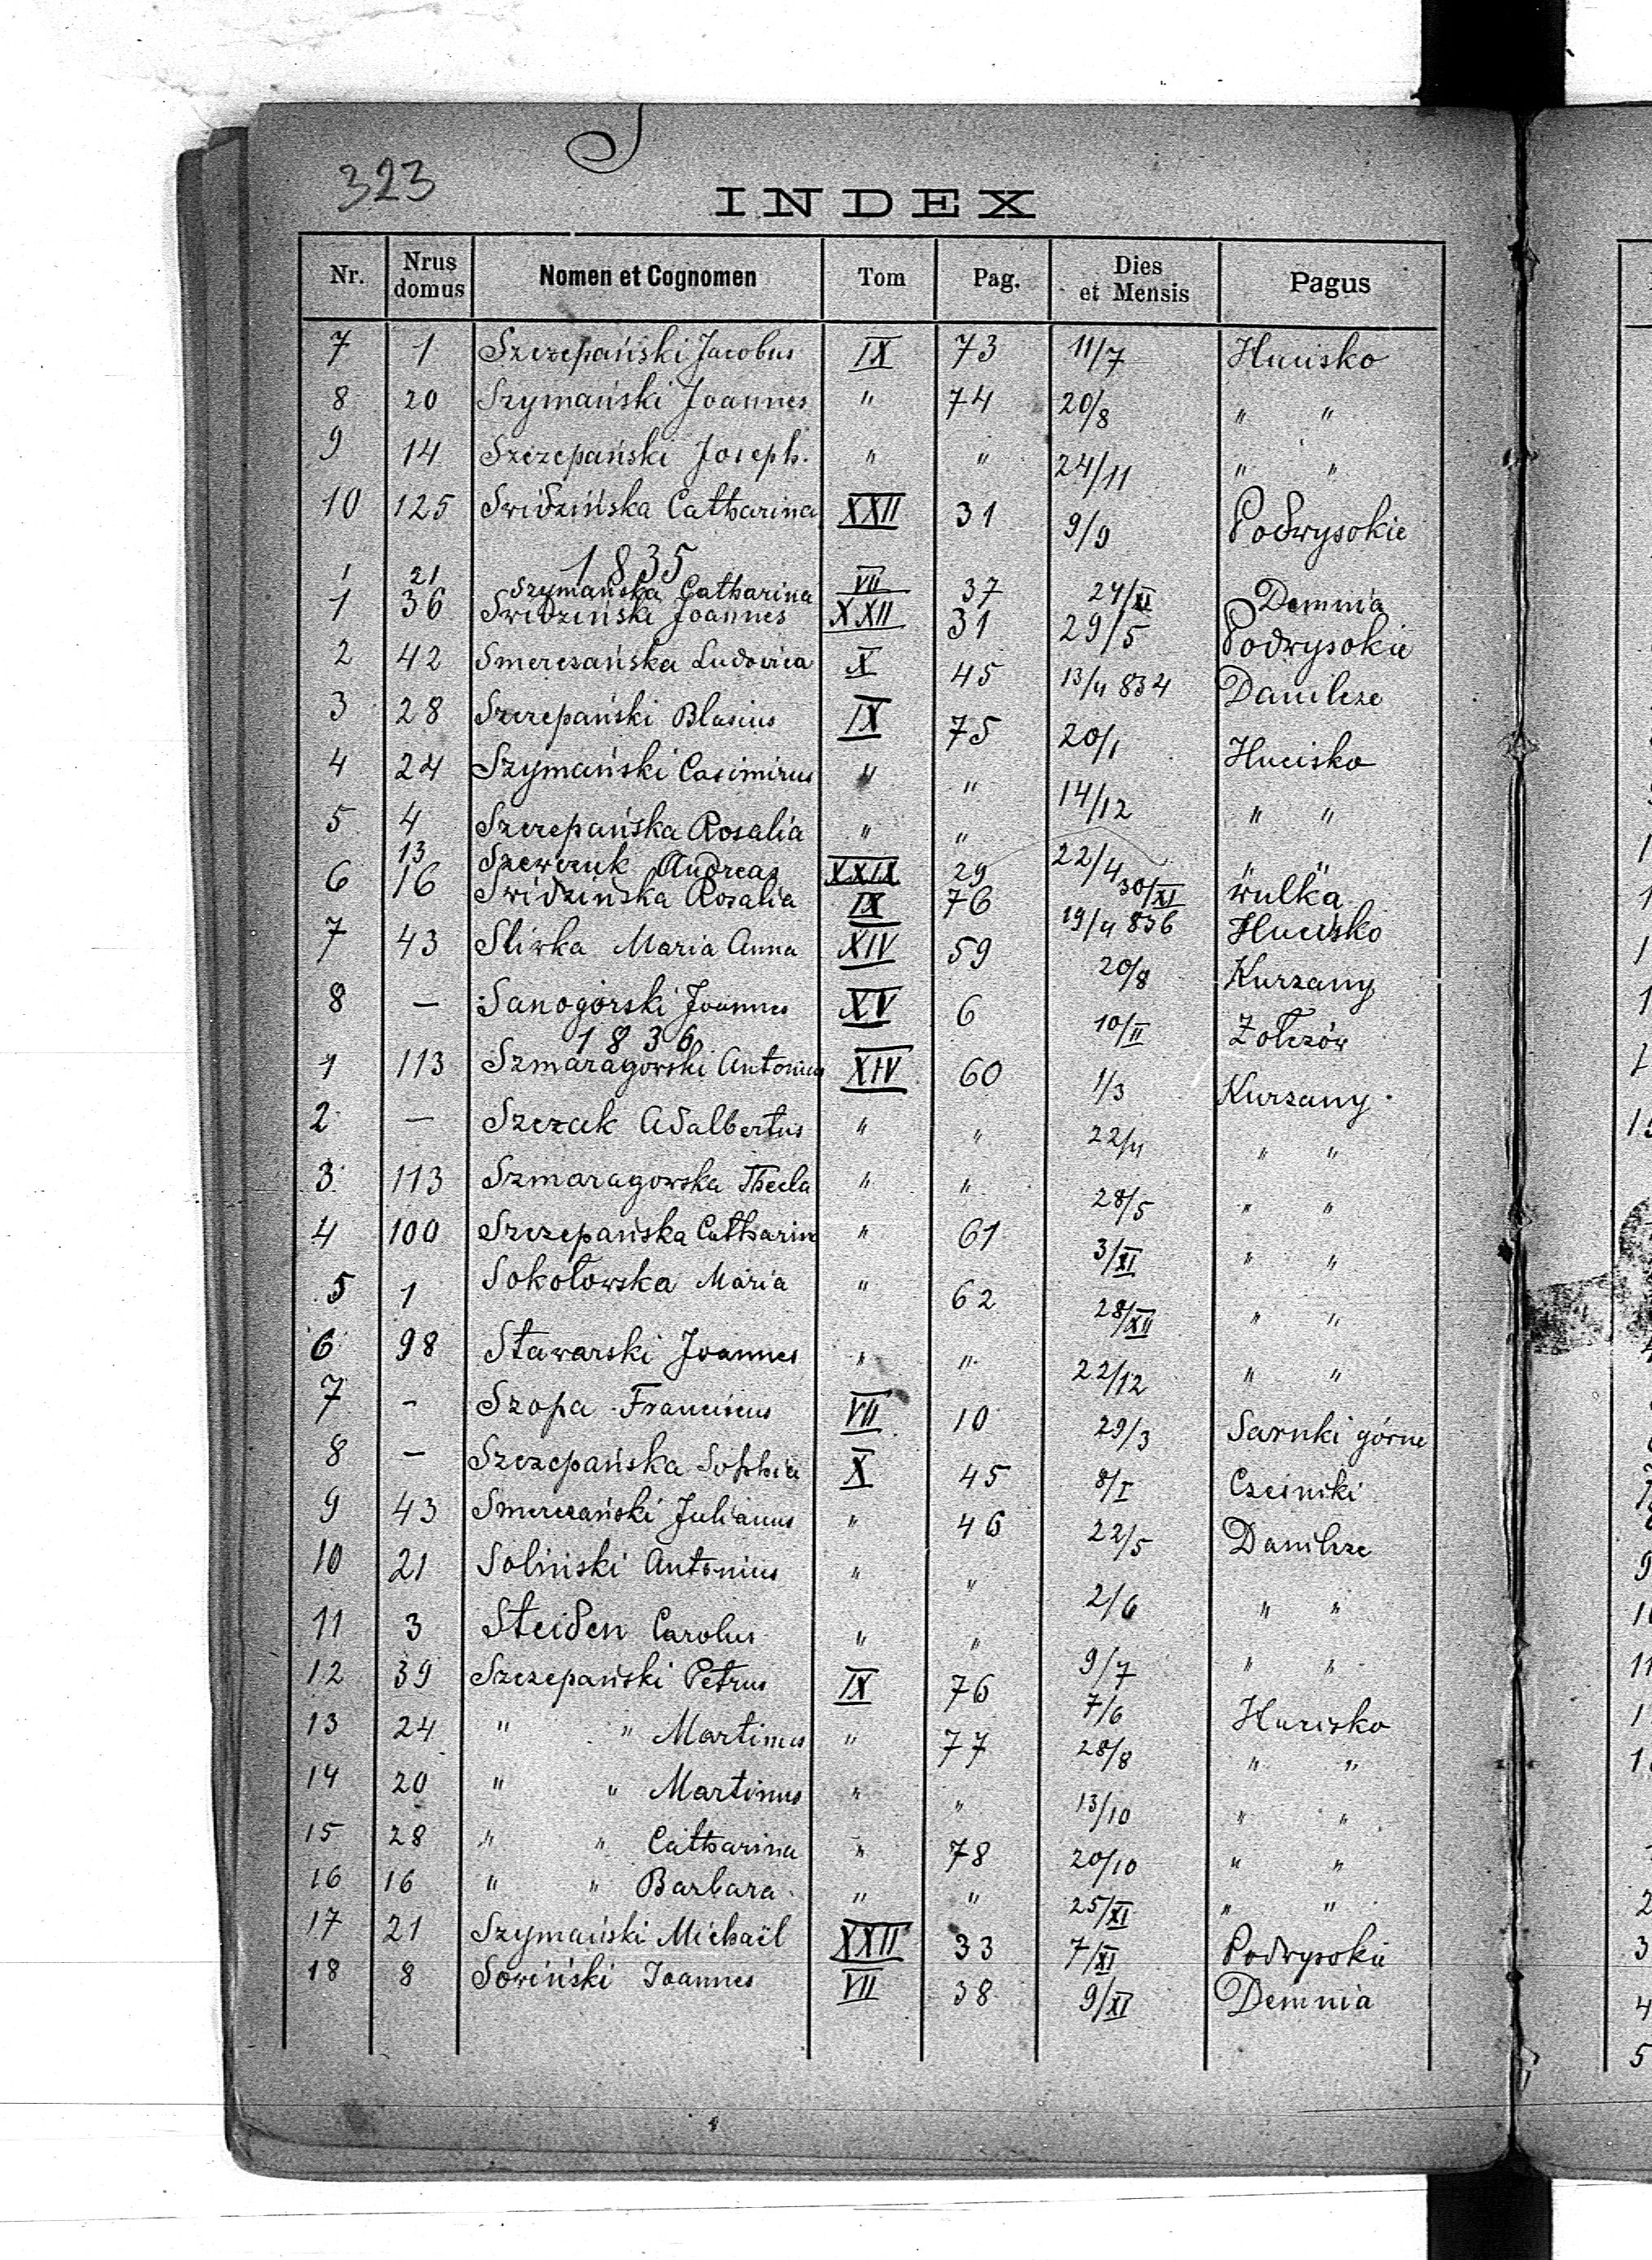 323 S
INDEX
Nr. Nrus domus Nomen et Cognomen Tom Pag. Dies et Mensis Pagus
7 1 Szczepański Jacobus IX 73 11/7 Hucisko
8 20 Szymański Joannes " 74 20/8 " "
9 14 Szczepański Joseph. " " 24/11 " "
10 125 Swidzińska Catharina XXII 31 9/9 Podwysokie
1835
1 21 Szymańska Catharina VII 37 24/XI Demnia
1 36 Swidziński Joannes XXII 31 29/5 Podwysokie
2 42 Smerezańska Ludovica X 45 13/4 834 Danilcze
3 28 Szczepański Blasius IX 75 20/1 Hucisko
4 24 Szymański Casimirus " " 14/12 " "
5 4 Szczepańska Rosalia " " 22/4 " "
13 Szewczuk Andreas XXIX 29 30/XI Wulka
6 16 Swidzińska Rosalia IX 76 19/4 836 Hucisko
7 43 Sliwka Maria Anna XIV 59 20/8 Kurzany
8 — Sanogórski Joannes XV 6 10/II Żołczów
1836
1 113 Szmaragowski Antonius XIV 60 1/3 Kurzany.
2 — Szczak Adalbertus " " 22/4 " "
3 113 Szmaragowska Thecla " " 28/5 " "
4 100 Szczepańska Catharin " 61 3/XI " "
5 1 Sokołowska Maria " 62 28/XII " "
6 98 Stawarski Joannes " " 22/12 " "
7 - Szopa Franciscus VII 10 29/3 Sarnki górne
8 — Szczepańska Sophia X 45 8/I Cześniki
9 43 Smerezański Julianus " 46 22/5 Danilcze
10 21 Soliński Antonius " " 2/6 " "
11 3 Steiden Carolus " " 9/7 " "
12 39 Szczepański Petrus IX 76 7/6 Hucisko
13 24 " " Martinus " 77 28/8 " "
14 20 " " Martinus " " 13/10 " "
15 28 " " Catharina " 78 20/10 " "
16 16 " " Barbara " " 25/XI " "
17 21 Szymański Michaël XXII 33 7/XI Podwysokie
18 8 Sowiński Joannes VII 38 9/XI Demnia